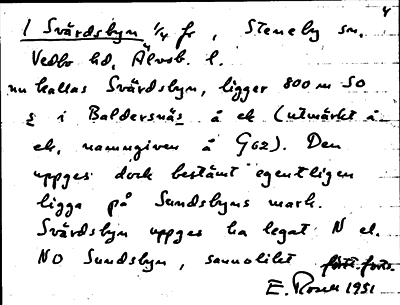 4
1 Svärdsbyn 1/4 fr, Steneby sn.
Vedbo hd, Älvsb. l.
nu kallas Svärdsbyn, ligger 800 m SO
s i Baldersnäs å ek (utmärkt å
ek, namngiven å G62). Den
uppges dock bestämt egentligen
ligga på Sundsbyns mark.
Svärdsbyn uppges ha legat N el.
NO Sundsbyn, sannolikt
E. Rosell 1951